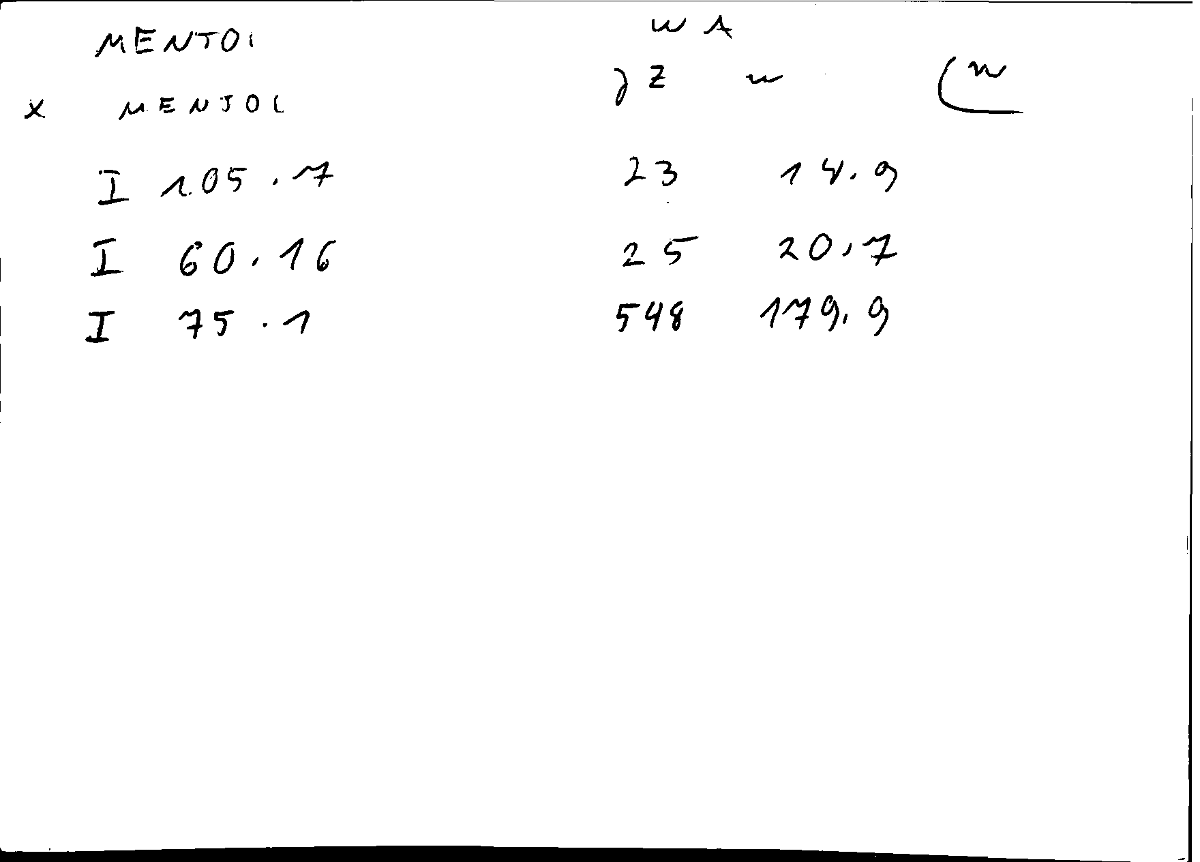 MENTOL W A
x MENTOL Z w
I 105.7 23 14.9
I 60.16 25 20.7
I 75.1 548 179.9